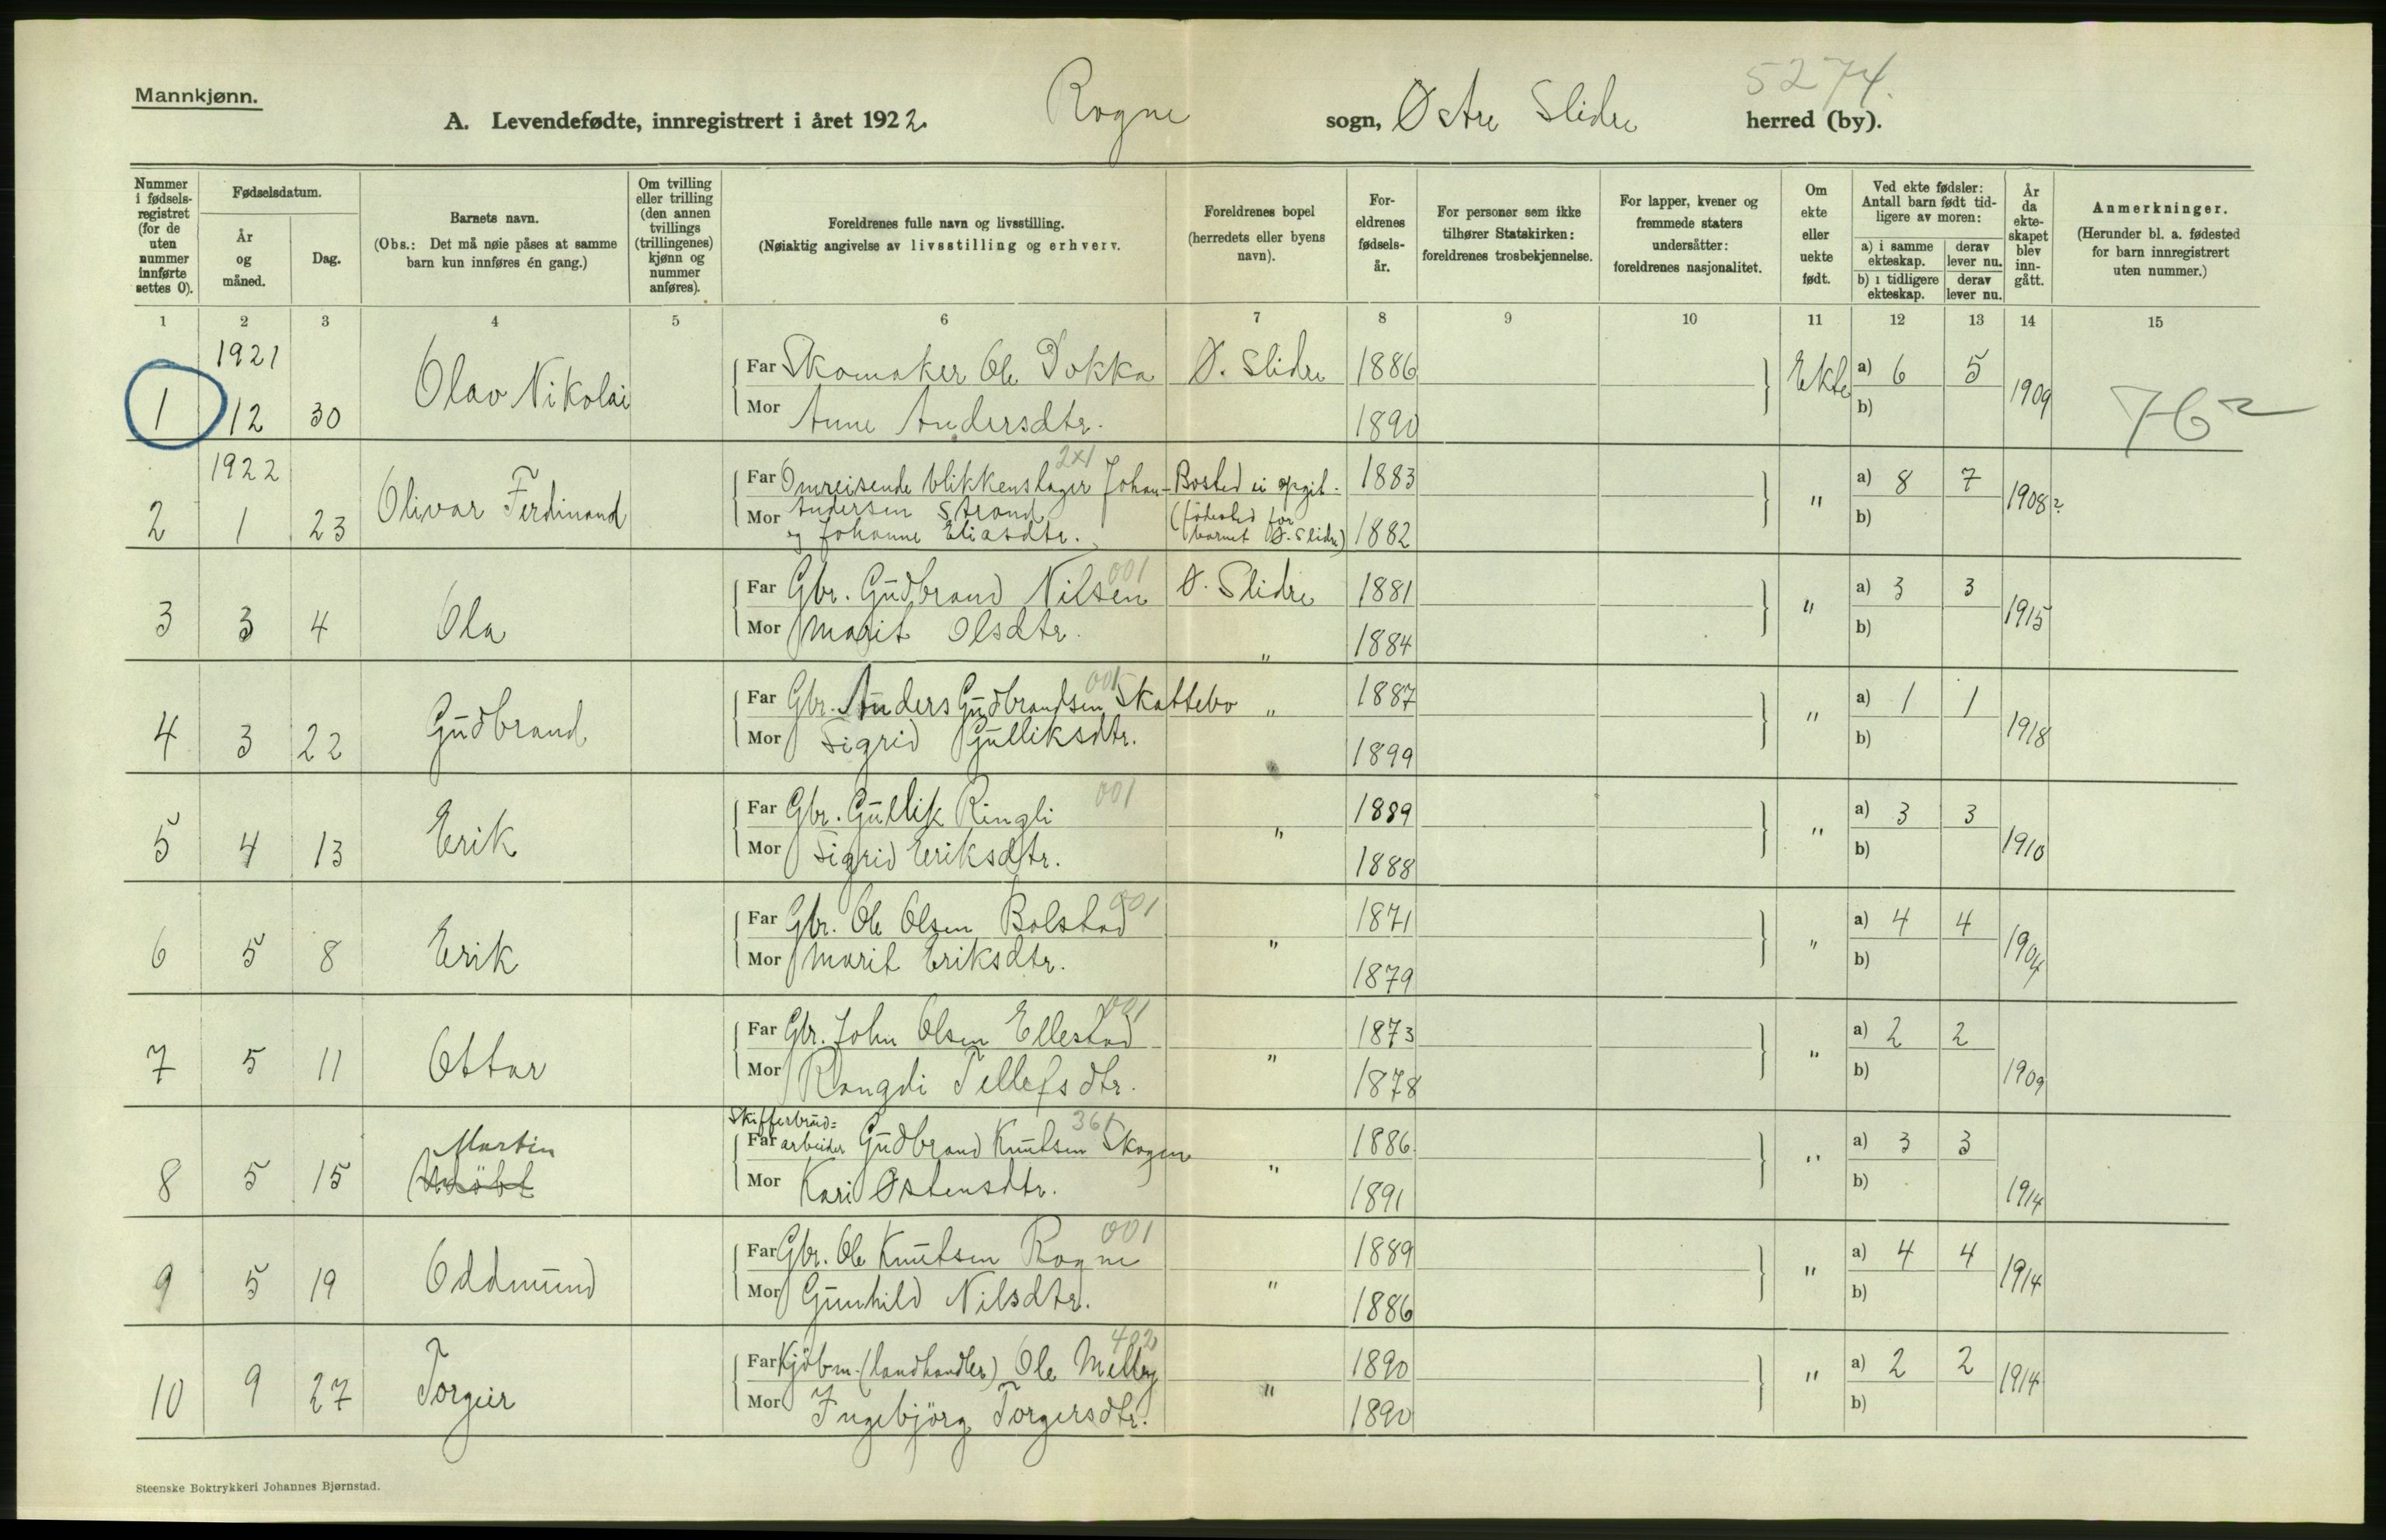 Mannkjønn.
5274.
A. Levendefødte, innregistrert i året 1922. Rogne sogn, Østre Slidre herred (by).
Nummer i fødsels-registret (for de uten nummer innførte settes 0).
Fødselsdatum.
År og måned.
Dag.
Barnets navn.
(Obs.: Det må nøie påses at samme barn kun innføres én gang.)
Om tvilling eller trilling (den annen tvillings (trillingenes) kjønn og nummer anføres).
Foreldrenes fulle navn og livsstilling.
(Nøiaktig angivelse av livsstilling og erhverv.
Foreldrenes bopel (herredets eller byens navn).
For-eldrenes fødsels-år.
For personer som ikke tilhører Statskirken: foreldrenes trosbekjennelse.
For lapper, kvener og fremmede staters undersåtter: foreldrenes nasjonalitet.
Om ekte eller uekte født.
Ved ekte fødsler: Antall barn født tid-ligere av moren:
a) i samme ekteskap.
derav lever nu.
b) i tidligere ekteskap.
derav lever nu.
År da ekte-skapet blev inn-gått.
Anmerkninger.
(Herunder bl. a. fødested for barn innregistrert uten nummer.)
1 2 3 4 5 6 7 8 9 10 11 12 13 14 15
1921
1 12 30 Olav Nikolai
Far Skomaker Ole Dokka Ø. Slidre 1886 Ekte a) 6 5 1909 762
Mor Anne Andersdtr. 1890 b)
1922
2 1 23 Olivar Ferdinand
2x1
Far Omreisende blikkenslager Johan Bosted ei opgit. 1883 " a) 8 7 1908?
Andersen Strand (fødested for
Mor og Johanne Eliasdtr. barnet Ø. Slidre) 1882 b)
001
3 3 4 Ola
Far Gbr. Gudbrand Nilsen Ø. Slidre 1881 " a) 3 3 1915
Mor Marit Olsdtr. " 1884 b)
001
4 3 22 Gudbrand
Far Gbr. Anders Gudbrandsen Skattebo " 1887 " a) 1 1 1918
Mor Sigrid Gulliksdtr. 1899 b)
001
5 4 13 Erik
Far Gbr. Gullik Ringli " 1889 " a) 3 3 1910
Mor Sigrid Eriksdtr. 1888 b)
001
6 5 8 Erik
Far Gbr. Ole Olsen Bolstad " 1871 " a) 4 4 1904
Mor Marit Eriksdtr. 1879 b)
001
7 5 11 Ottar
Far Gbr. John Olsen Ellestad " 1873 " a) 2 2 1909
Mor Rangdi Tellefsdtr. 1878 b)
Skifferbrud=
361
8 5 15 Martin
Far arbeider Gudbrand Knutsen Skogen " 1886 " a) 3 3 1914
Mor Kari Østensdtr. 1891 b)
001
9 5 19 Oddmund
Far Gbr. Ole Knutsen Rogne " 1889 " a) 4 4 1914
Mor Gunhild Nilsdtr. 1886 b)
402
10 9 27 Torgeir
Far Kjöbm. (landhandler) Ole Melby " 1890 " a) 2 2 1914
Mor Ingebjörg Torgersdtr. 1890 b)
Steenske Boktrykkeri Johannes Bjørnstad.